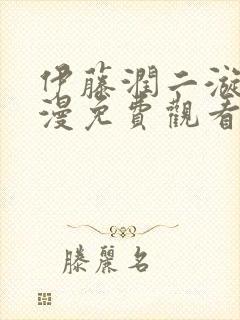 伊藤潤二漩
漫免費觀看
滕麗名